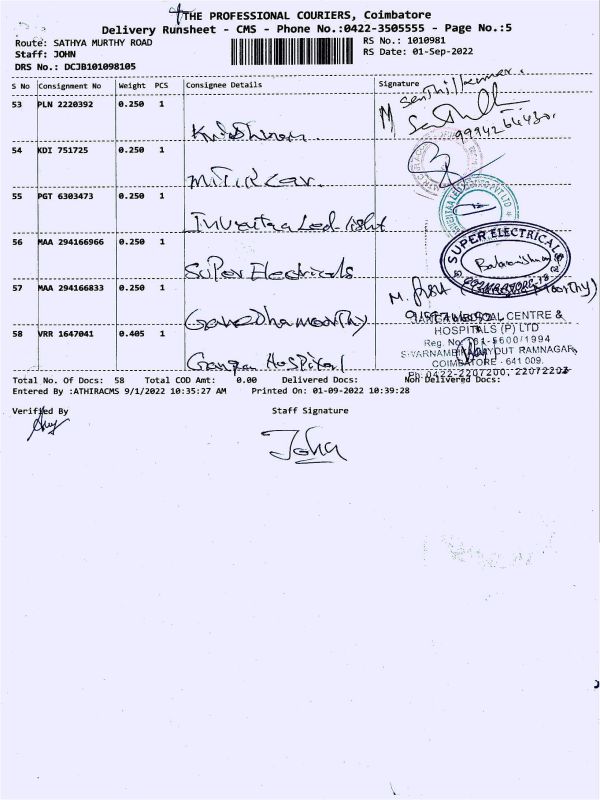 THE PROFESSIONAL COURIERS, Coimbatore
Delivery Runsheet - CMS - Phone No.:0422-3505555 - Page No.:5
Route: SATHYA MURTHY ROAD RS No.: 1010981
Staff: JOHN RS Date: 01-Sep-2022
DRS No.: DCJB101098105
S No Consignment No Weight PCS Consignee Details Signature
Senthilkumar.
53 PLN 2220392 0.250 1
9994266430.
54 KDI 751725 0.250 1
55 PGT 6303473 0.250 1
Led light
56 MAA 294166966 0.250 1
SUPER ELECTRICAL
Super Electricals
57 MAA 294166833 0.250 1
Ganeshamoorthy
CENTRE &
HOSPITALS (P) LTD
58 VRR 1647041 0.405 1
Ganga Hospital
RAMNAGAR,
COIMBATORE - 641 009.
Ph: 0422-2207200, 22072203
Total No. Of Docs: 58 Total COD Amt: 0.00 Delivered Docs: Non Delivered Docs:
Entered By :ATHIRACMS 9/1/2022 10:35:27 AM Printed On: 01-09-2022 10:39:28
Verified By Staff Signature
John